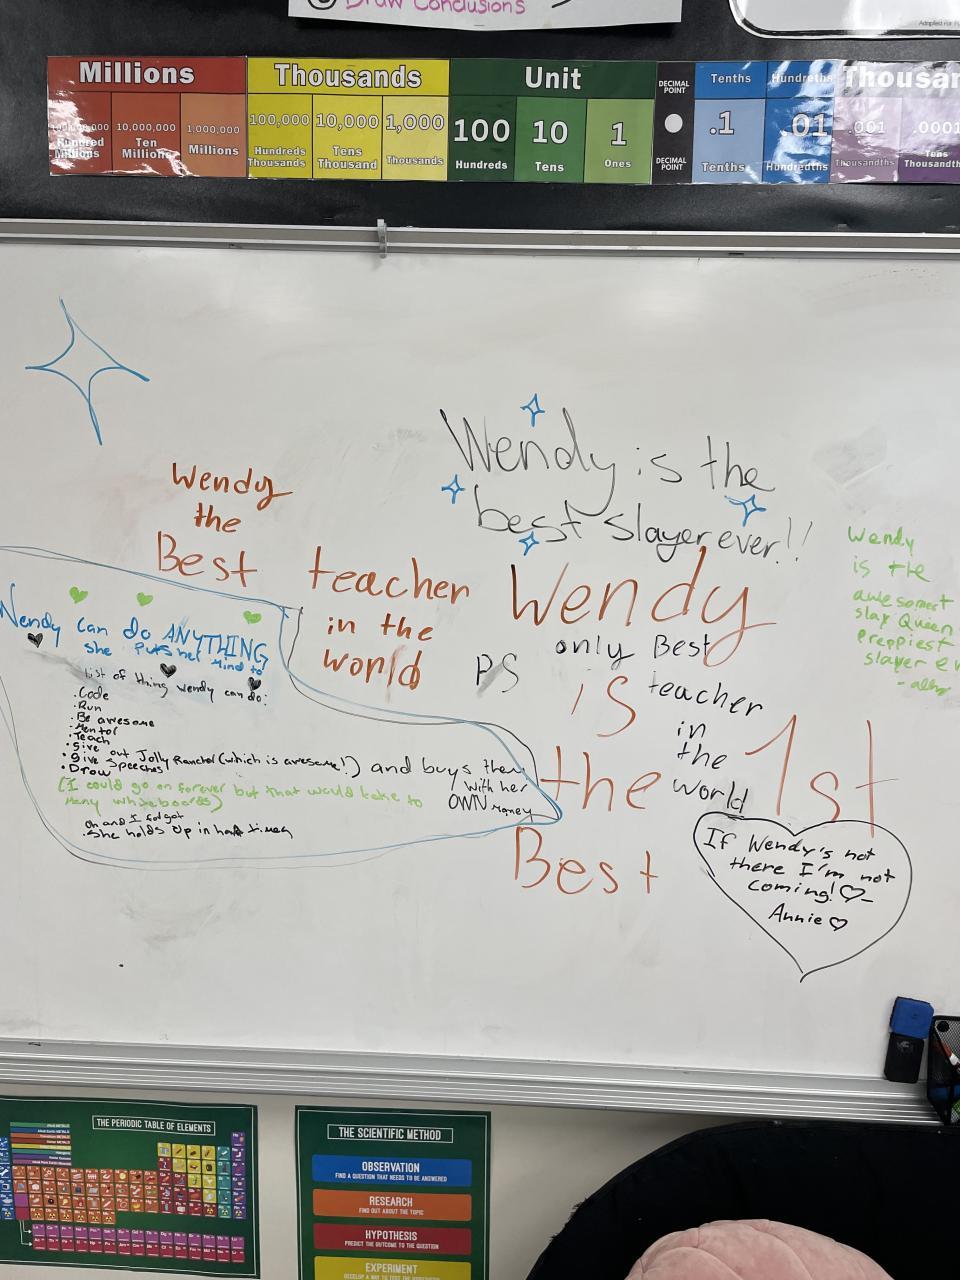 Draw Conclusions
Millions
Thousands
Unit
Thousan
DECIMAL POINT
Tenths
Hundreths
10,000,000
1,000,000
100,000
10,000
1,000
100
10
1
.1
.01
.001
.0001
Hundred Millions
Ten Millions
Millions
Hundreds Thousands
Tens Thousand
Thousands
Hundreds
Tens
Ones
DECIMAL POINT
Tenths
Hundredths
Thousandths
Tens Thousandth
Wendy is the
best slayer ever!!
Wendy
the
Best teacher
in the
world
Wendy
is
the 1st
Best
PS only Best
teacher
in
the
world
Wendy
is the
awesomest
slay Queen
preppiest
slayer ev
Wendy can do ANYTHING
she puts her mind to
list of thing wendy can do:
• Code
• Run
• Be awesome
• Mentor
• Teach
• Give out Jolly Rancher (which is awesome!) and buys them
with her
OWN money
• Give speeches
• Draw
(I could go on forever but that would take to
many whiteboards)
oh and I forgot
• She holds up in hard times
If Wendy's not
there I'm not
coming! ♡-
Annie ♡
THE PERIODIC TABLE OF ELEMENTS
THE SCIENTIFIC METHOD
OBSERVATION
FIND A QUESTION THAT NEEDS TO BE ANSWERED
RESEARCH
FIND OUT ABOUT THE TOPIC
HYPOTHESIS
PREDICT THE OUTCOME TO THE QUESTION
EXPERIMENT